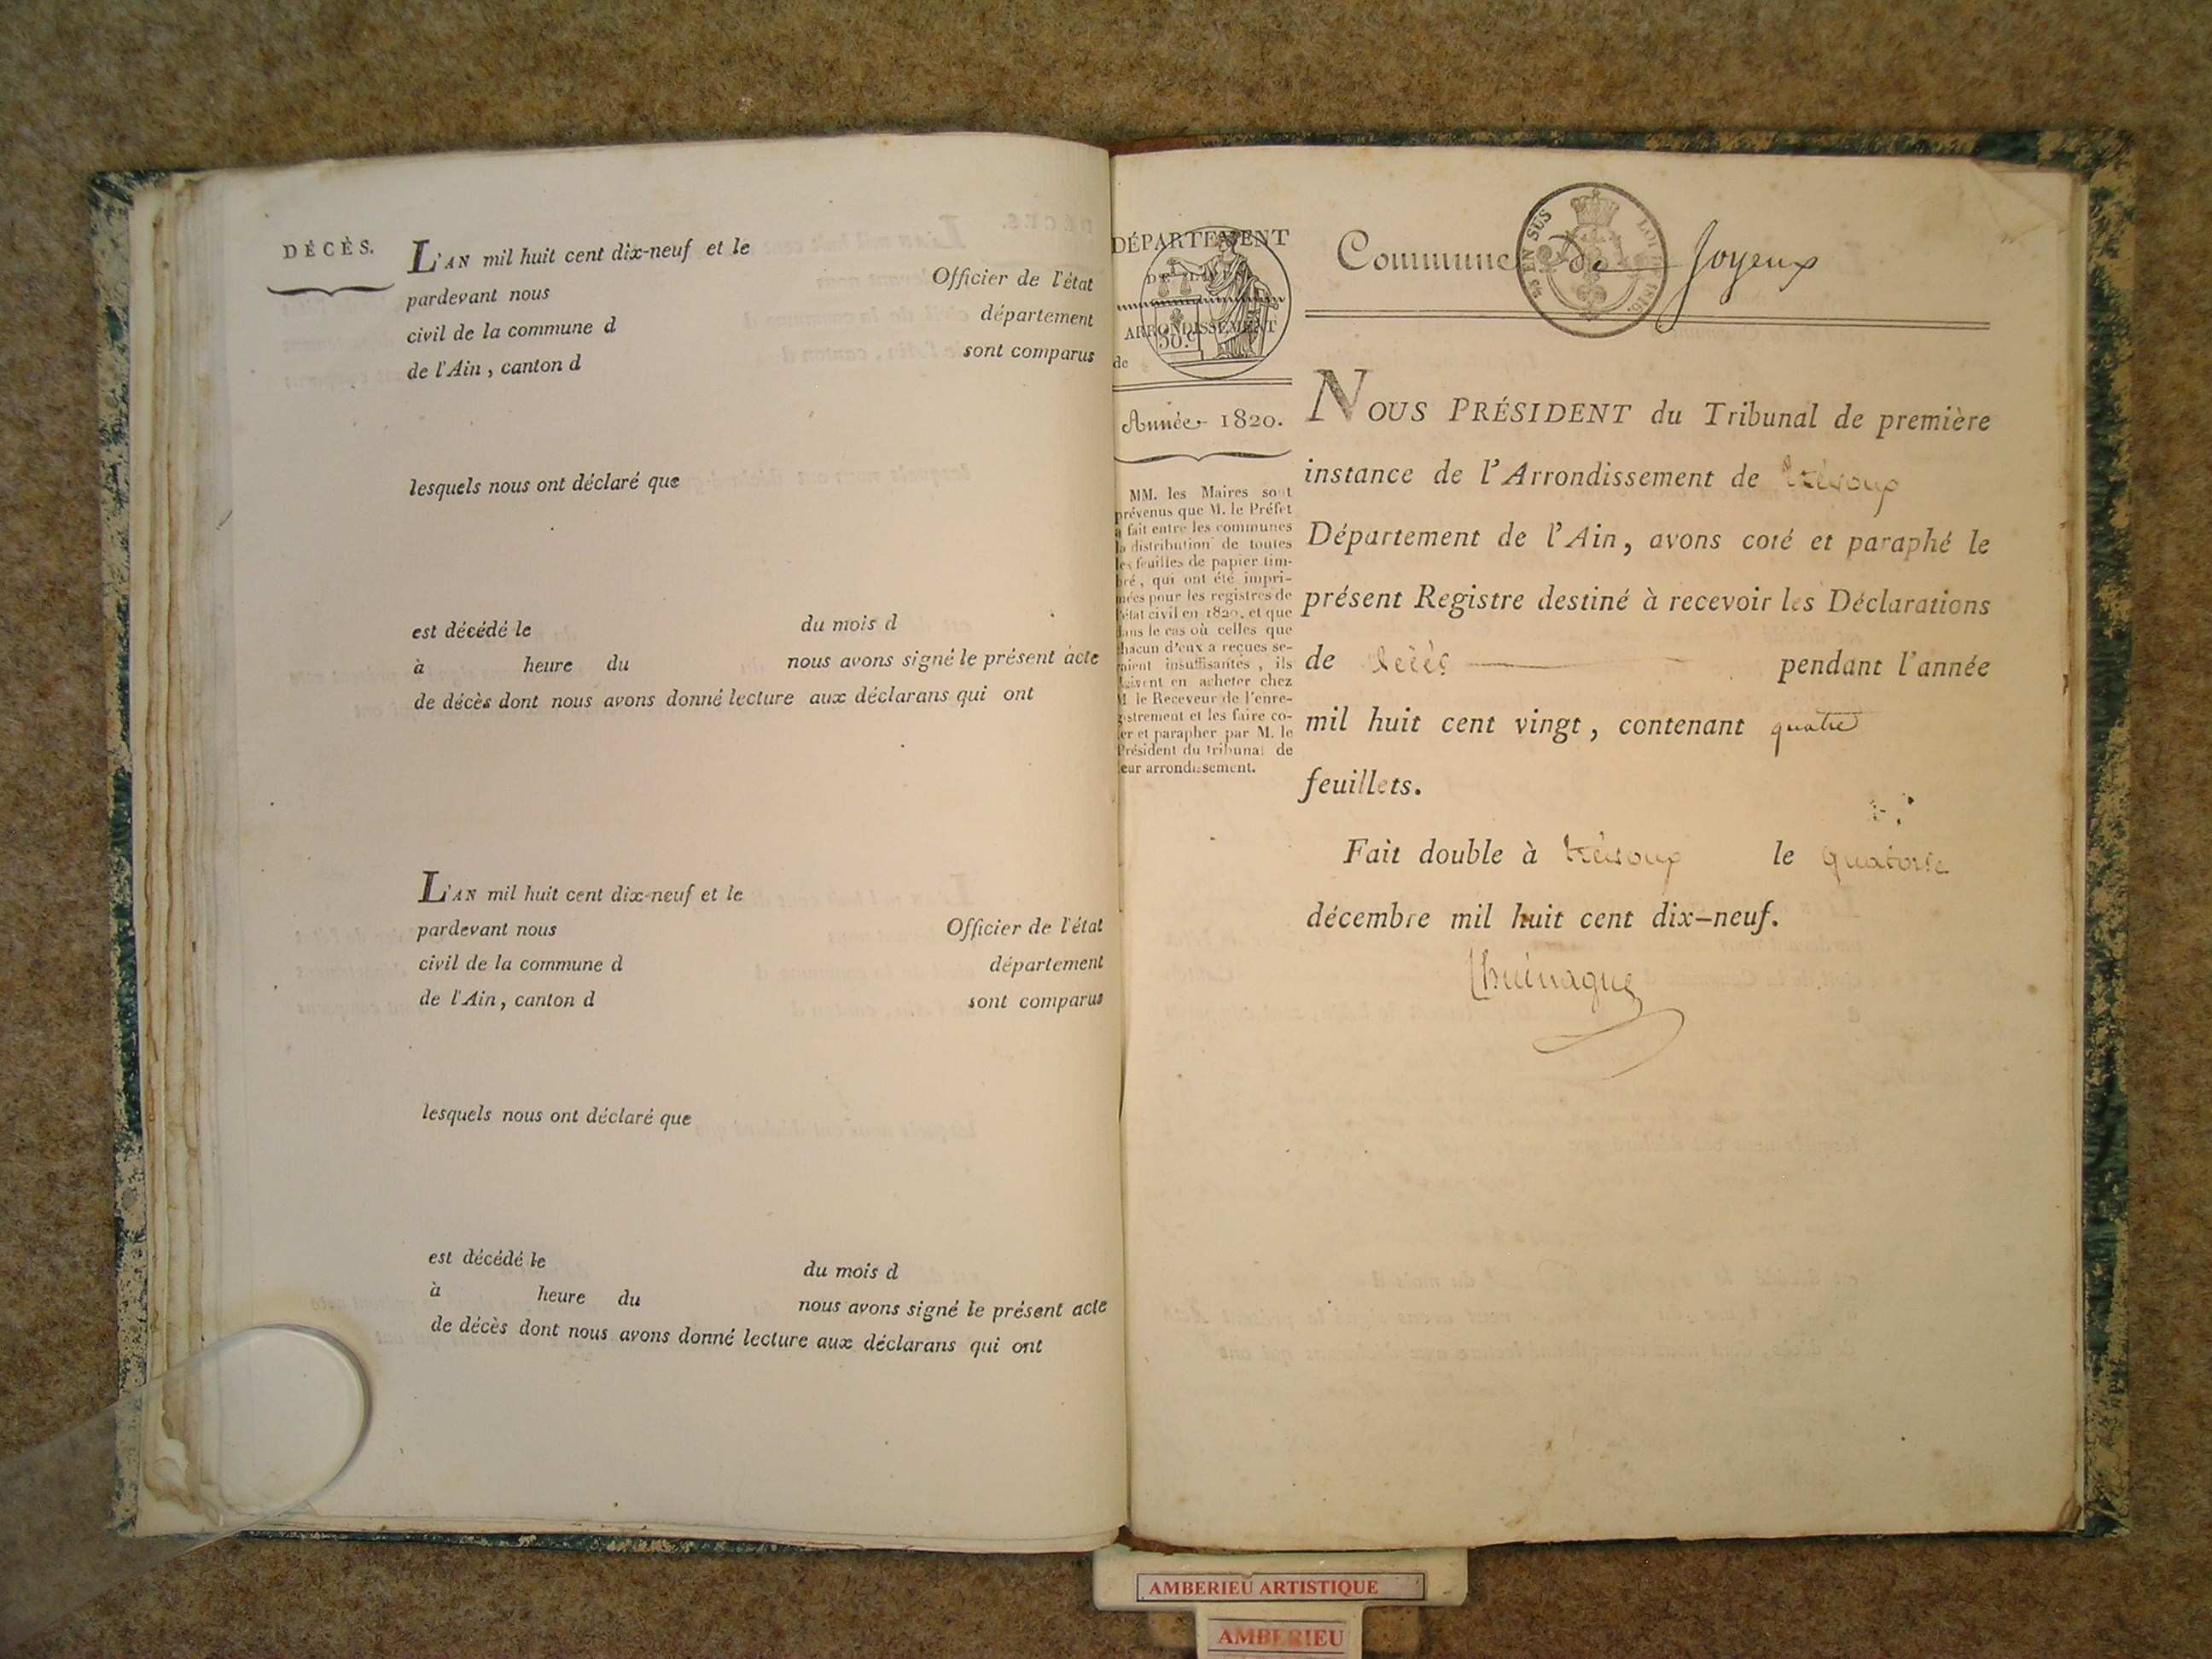 DÉCÈS.
L'AN mil huit cent dix-neuf et le
pardevant nous Officier de l'état
civil de la commune d département
de l'Ain, canton d sont comparus
lesquels nous ont déclaré que
est décédé le du mois d
à heure du nous avons signé le présent acte
de décès dont nous avons donné lecture aux déclarans qui ont
L'AN mil huit cent dix-neuf et le
pardevant nous Officier de l'état
civil de la commune d département
de l'Ain, canton d sont comparus
lesquels nous ont déclaré que
est décédé le du mois d
à heure du nous avons signé le présent acte
de décès dont nous avons donné lecture aux déclarans qui ont
DÉPARTEMENT
DE L'AIN
ARRONDISSEMENT
de
50.c
Année 1820.
MM. les Maires sont
prévenus que M. le Préfet
a fait entre les communes
la distribution de toutes
les feuilles de papier tim-
bré, qui ont été impri-
mées pour les registres de
l'état civil en 1820, et que
dans le cas où celles que
chacun d'eux a reçues se-
raient insuffisantes, ils
doivent en acheter chez
M. le Receveur de l'enre-
gistrement et les faire co-
ter et parapher par M. le
Président du tribunal de
leur arrondissement.
Commune de Joyeux
EN SUS
LOI 1816.
NOUS PRÉSIDENT du Tribunal de première
instance de l'Arrondissement de trévoux
Département de l'Ain, avons coté et paraphé le
présent Registre destiné à recevoir les Déclarations
de décès pendant l'année
mil huit cent vingt, contenant quatre
feuillets.
Fait double à trévoux le quatorze
décembre mil huit cent dix-neuf.
AMBERIEU ARTISTIQUE
AMBERIEU